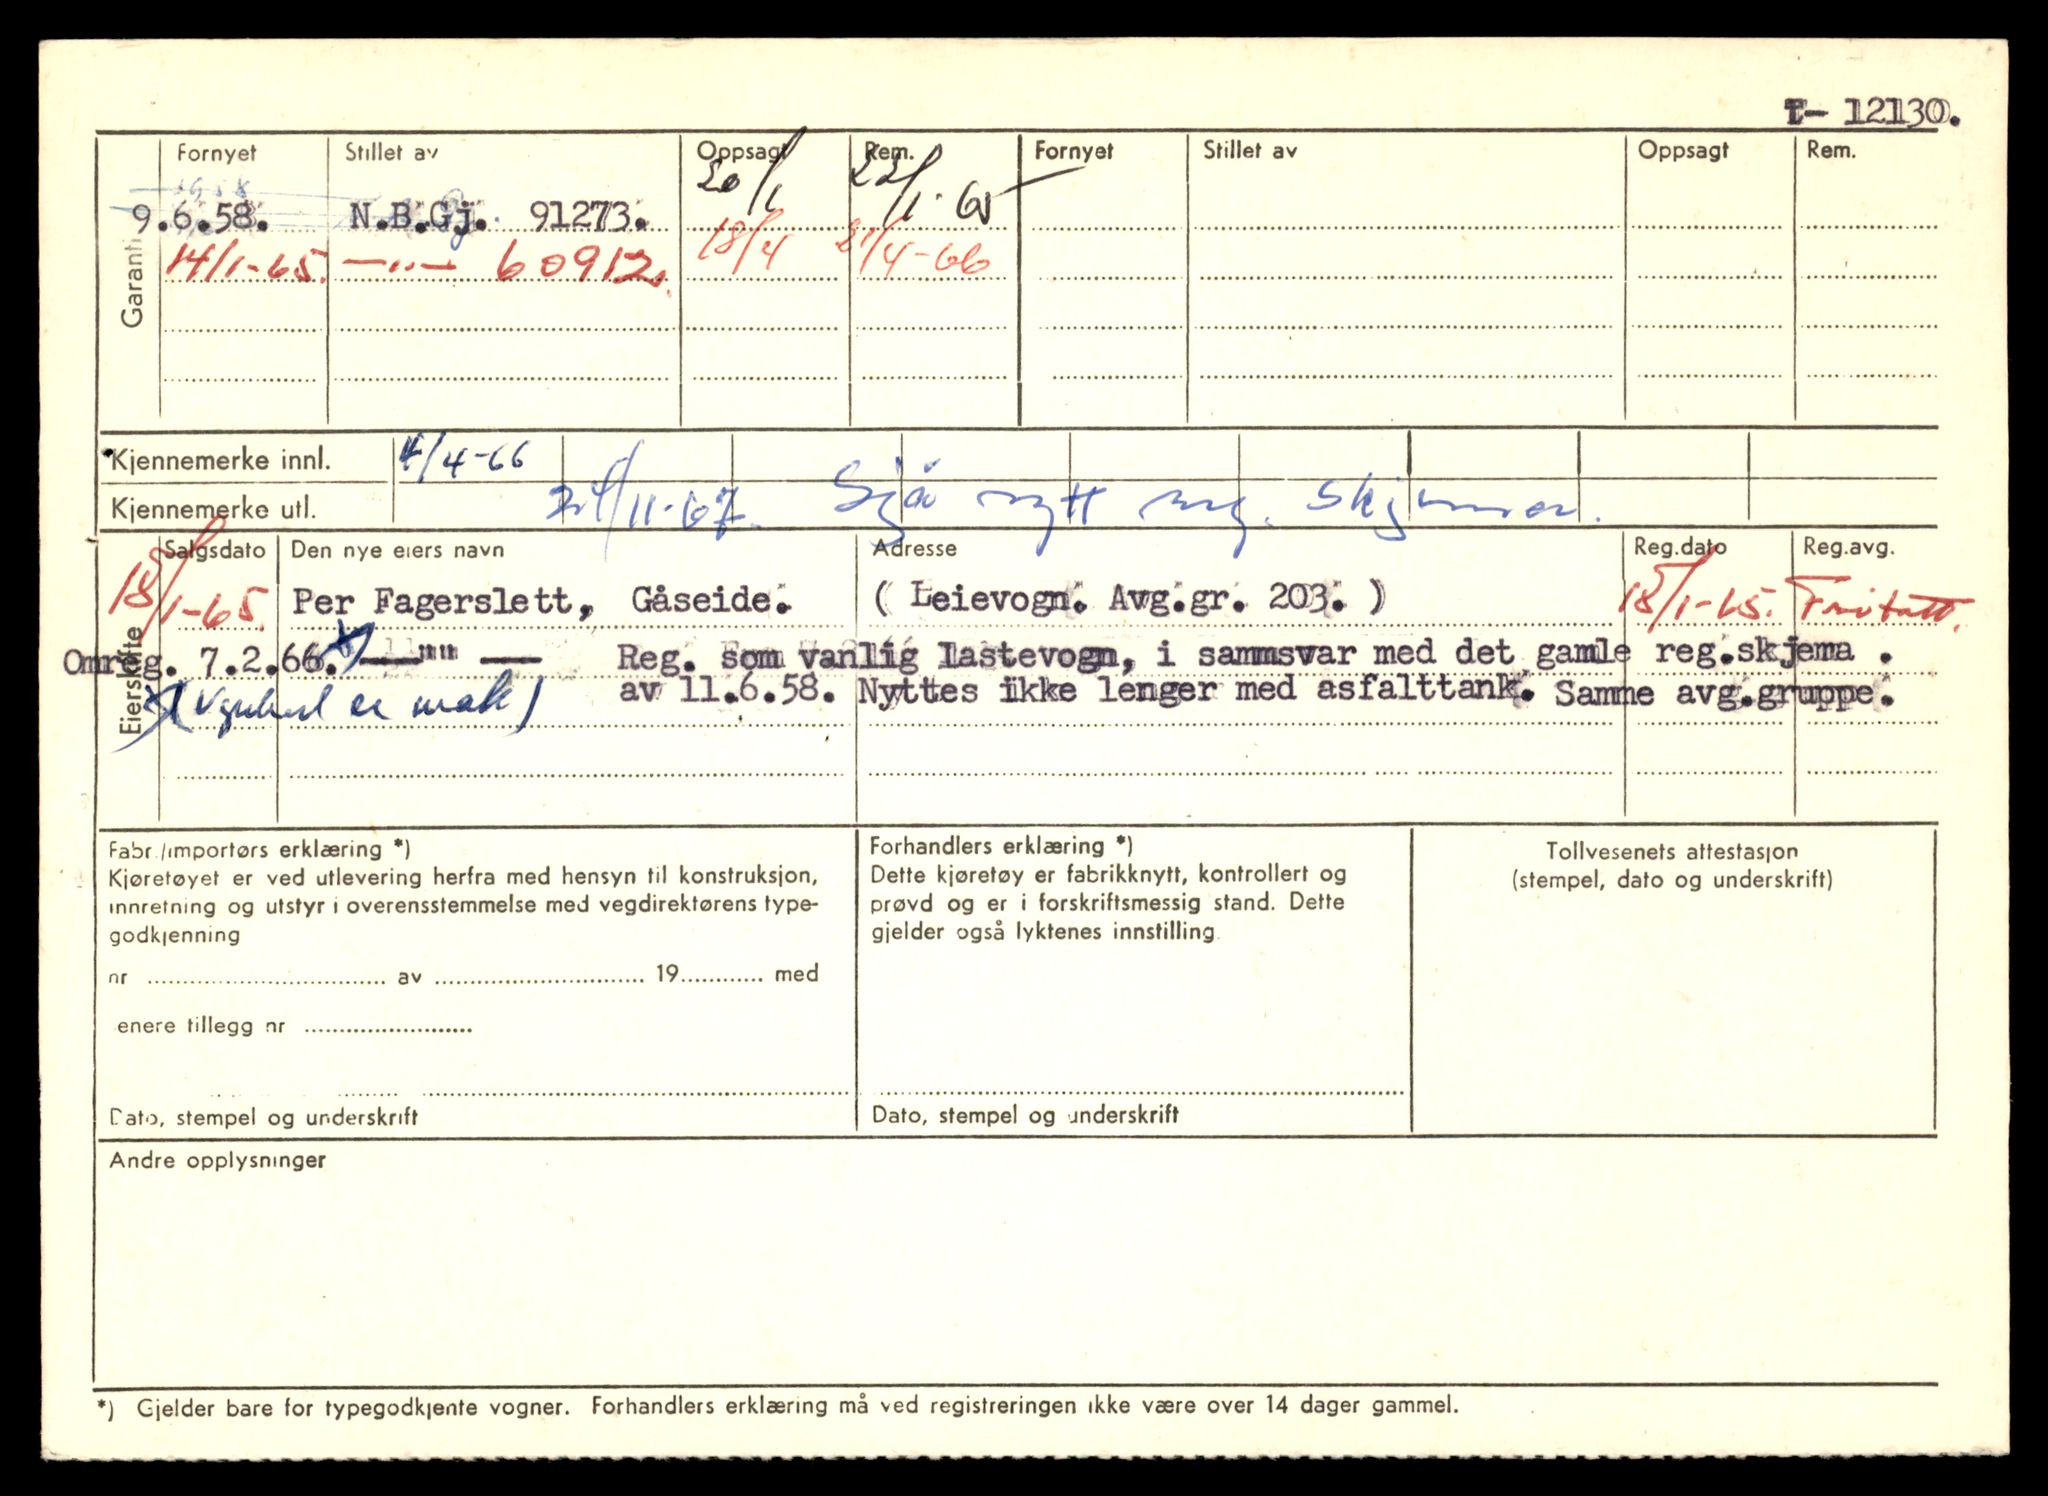 T- 12130.
Fornyet Stillet av Oppsagt Rem. Fornyet Stillet av Oppsagt Rem.
Garanti
9.6.58. N.B.Gj. 91273. 20/1 22/1-65
14/1-65. —"— 60912. 18/4 21/4-66
Kjennemerke innl. 4/4-66
Kjennemerke utl. 24/11-67. Sjå nytt reg. skjema.
Eierskifte
Salgsdato Den nye eiers navn Adresse Reg.dato Reg.avg.
18/1-65. Per Fagerslett, Gåseide. ( Leievogn. Avg.gr. 203. ) 18/1-65. Fritatt.
Omreg. 7.2.66. —""— Reg. som vanlig lastevogn, i sammsvar med det gamle reg.skjema .
er av 11.6.58. Nyttes ikke lenger med asfalttank. Samme avg.gruppe.
Fabr./importørs erklæring *)
Kjøretøyet er ved utlevering herfra med hensyn til konstruksjon,
innretning og utstyr i overensstemmelse med vegdirektørens type-
godkjenning
nr ........ av ........ 19........ med
enere tillegg nr ........
Dato, stempel og underskrift
Forhandlers erklæring *)
Dette kjøretøy er fabrikknytt, kontrollert og
prøvd og er i forskriftsmessig stand. Dette
gjelder også lyktenes innstilling
Dato, stempel og underskrift
Tollvesenets attestasjon
(stempel, dato og underskrift)
Andre opplysninger
*) Gjelder bare for typegodkjente vogner. Forhandlers erklæring må ved registreringen ikke være over 14 dager gammel.